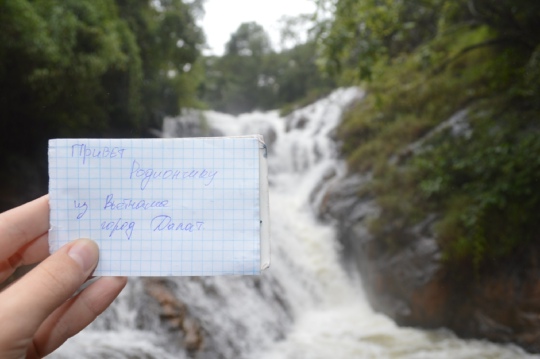 Привет
Родиончику
из Вьетнама
город Далат